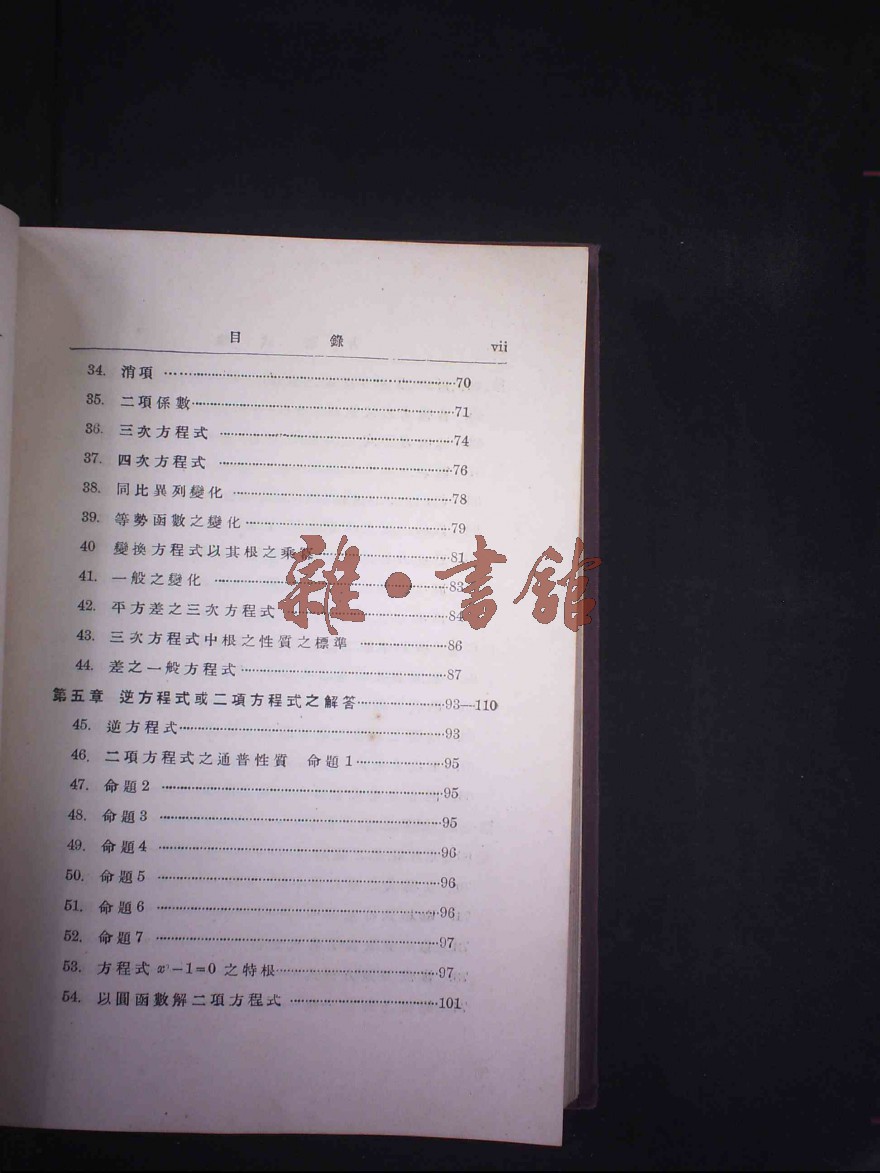 目 錄 vii
34. 消項 ……70
35. 二項係數……71
36. 三次方程式 ……74
37. 四次方程式 ……76
38. 同比異列變化 ……78
39. 等勢函數之變化……79
40 變換方程式以其根之乘 ……81
41. 一般之變化 ……83
42. 平方差之三次方程式 ……84
43. 三次方程式中根之性質之標準 ……86
44. 差之一般方程式……87
第五章 逆方程式或二項方程式之解答……93—110
45. 逆方程式……93
46. 二項方程式之通普性質 命題1……95
47. 命題2 ……95
48. 命題3 ……95
49. 命題4 ……96
50. 命題5 ……96
51. 命題6 ……96
52. 命題7 ……97
53. 方程式 x −1=0 之特根……97
54. 以圓函數解二項方程式 ……101
雜·書館